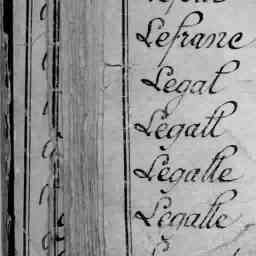 Lefranc
Legal
Legall
Legalle
Legalle